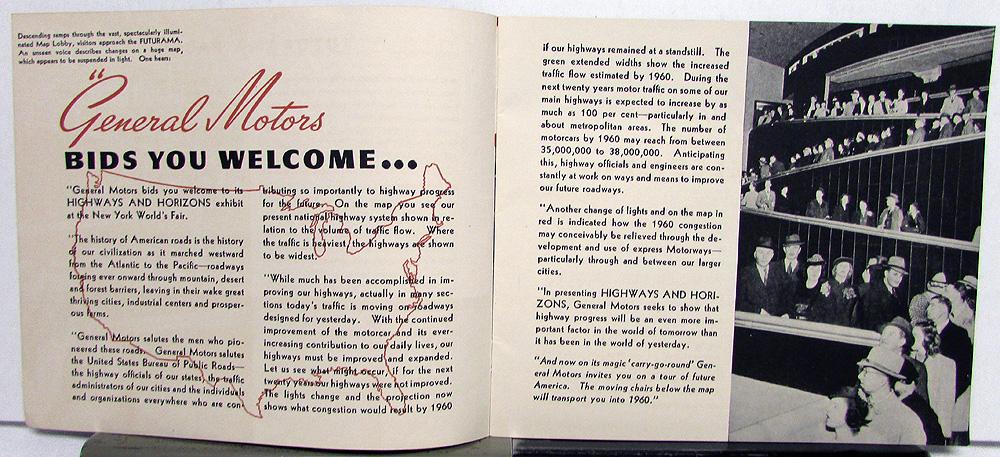 Descending ramps through the vast, spectacularly illumi-
nated Map Lobby, visitors approach the FUTURAMA.
An unseen voice describes changes on a huge map,
which appears to be suspended in light. One hears:
"General Motors
BIDS YOU WELCOME...
"General Motors bids you welcome to its
HIGHWAYS AND HORIZONS exhibit
at the New York World's Fair.
"The history of American roads is the history
of our civilization as it marched westward
from the Atlantic to the Pacific—roadways
forging ever onward through mountain, desert
and forest barriers, leaving in their wake great
thriving cities, industrial centers and prosper-
ous farms.
"General Motors salutes the men who pio-
neered these roads. General Motors salutes
the United States Bureau of Public Roads—
the highway officials of our states, the traffic
administrators of our cities and the individuals
and organizations everywhere who are con-
tributing so importantly to highway progress
for the future. On the map you see our
present national highway system shown in re-
lation to the volume of traffic flow. Where
the traffic is heaviest, the highways are shown
to be widest.
"While much has been accomplished in im-
proving our highways, actually in many sec-
tions today's traffic is moving on roadways
designed for yesterday. With the continued
improvement of the motorcar and its ever-
increasing contribution to our daily lives, our
highways must be improved and expanded.
Let us see what might occur if for the next
twenty years our highways were not improved.
The lights change and the projection now
shows what congestion would result by 1960
if our highways remained at a standstill. The
green extended widths show the increased
traffic flow estimated by 1960. During the
next twenty years motor traffic on some of our
main highways is expected to increase by as
much as 100 per cent—particularly in and
about metropolitan areas. The number of
motorcars by 1960 may reach from between
35,000,000 to 38,000,000. Anticipating
this, highway officials and engineers are con-
stantly at work on ways and means to improve
our future roadways.
"Another change of lights and on the map in
red is indicated how the 1960 congestion
may conceivably be relieved through the de-
velopment and use of express Motorways—
particularly through and between our larger
cities.
"In presenting HIGHWAYS AND HORI-
ZONS, General Motors seeks to show that
highway progress will be an even more im-
portant factor in the world of tomorrow than
it has been in the world of yesterday.
"And now on its magic 'carry-go-round' Gen-
eral Motors invites you on a tour of future
America. The moving chairs below the map
will transport you into 1960."